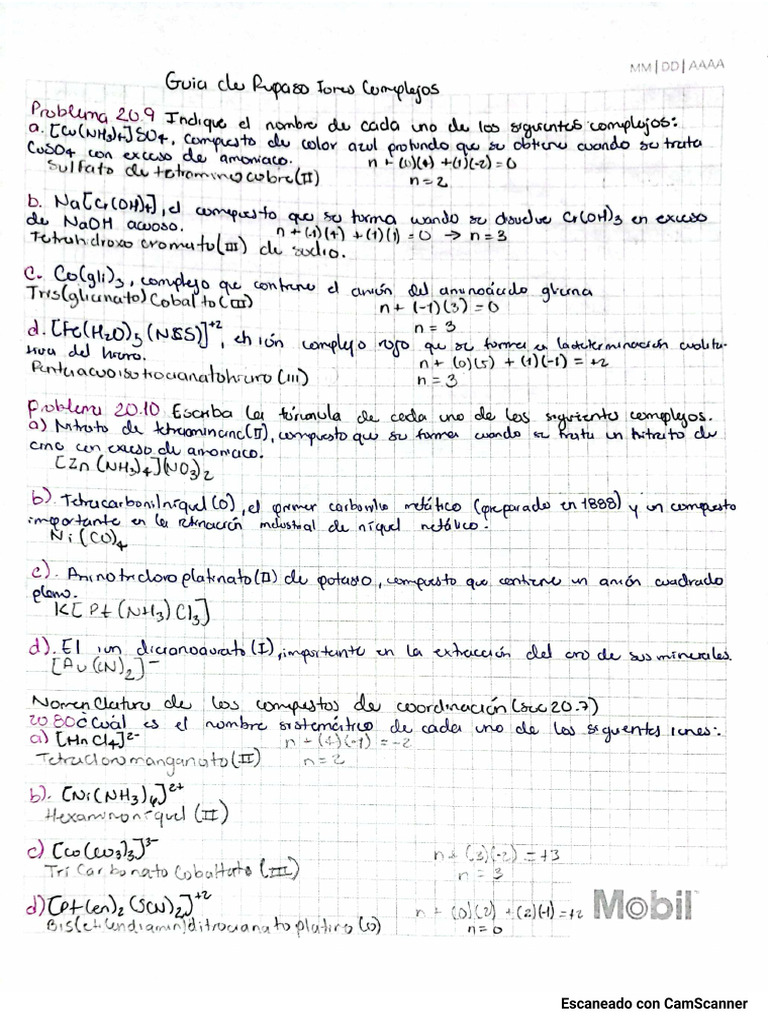 MM|DD|AAAA
Guia de Repaso Iones Complejos
Problema 20.9 Indique el nombre de cada uno de los siguientes complejos:
a. [Cu(NH3)4]SO4, compuesto de color azul profundo que se obtiene cuando se trata
CuSO4 con exceso de amoniaco. n + (1)(4) + (1)(-2) = 0
Sulfato de tetraminocobre(II) n = 2
b. Na[Cr(OH)4], el compuesto que se forma cuando se disuelve Cr(OH)3 en exceso
de NaOH acuoso. n + (-1)(4) + (1)(1) = 0 → n = 3
Tetrahidroxo cromato(III) de sodio.
C. Co(gli)3, complejo que contiene el anión del aminoácido glicina
Tris(glicinato)Cobalto(III) n + (-1)(3) = 0
n = 3
d. [Fe(H2O)5(NCS)]+2, el ión complejo rojo que se forma en la determinación cualita-
tiva del hierro. n + (0)(5) + (1)(-1) = +2
Pentaacuoisotiocianatohierro(III) n = 3
Problema 20.10 Escriba la fórmula de cada uno de los siguiente complejos.
a) Nitrato de tetraamincinc(II), compuesto que se forma cuando se trata un nitrato de
cinc con exceso de amoniaco.
[Zn(NH3)4](NO3)2
b). Tetracarbonilníquel(0), el primer carbonilo metálico (preparado en 1888) y un compuesto
importante en la refinación industrial de níquel metálico.
Ni(CO)4
c). Aminotricloroplatinato(II) de potasio, compuesto que contiene un anión cuadrado
plano.
K[Pt(NH3)Cl3]
d). El ion dicianoaurato(I), importante en la extracción del oro de sus minerales.
[Au(CN)2]-
Nomenclatura de los compuestos de coordinación (sec 20.7)
20.80 ¿Cuál es el nombre sistemático de cada uno de los siguientes iones:
a) [MnCl4]2- n + (4)(-1) = -2
Tetracloromanganato(II) n = 2
b). [Ni(NH3)6]2+
Hexaminoníquel(II)
c) [Co(CO3)3]3- n + (3)(-2) = +3
Tri Carbonato Cobaltato(III) n = 3
d) [Pt(en)2(SCN)2]+2 n + (0)(2) + (2)(-1) = +2
n = 0
Mobil
Escaneado con CamScanner